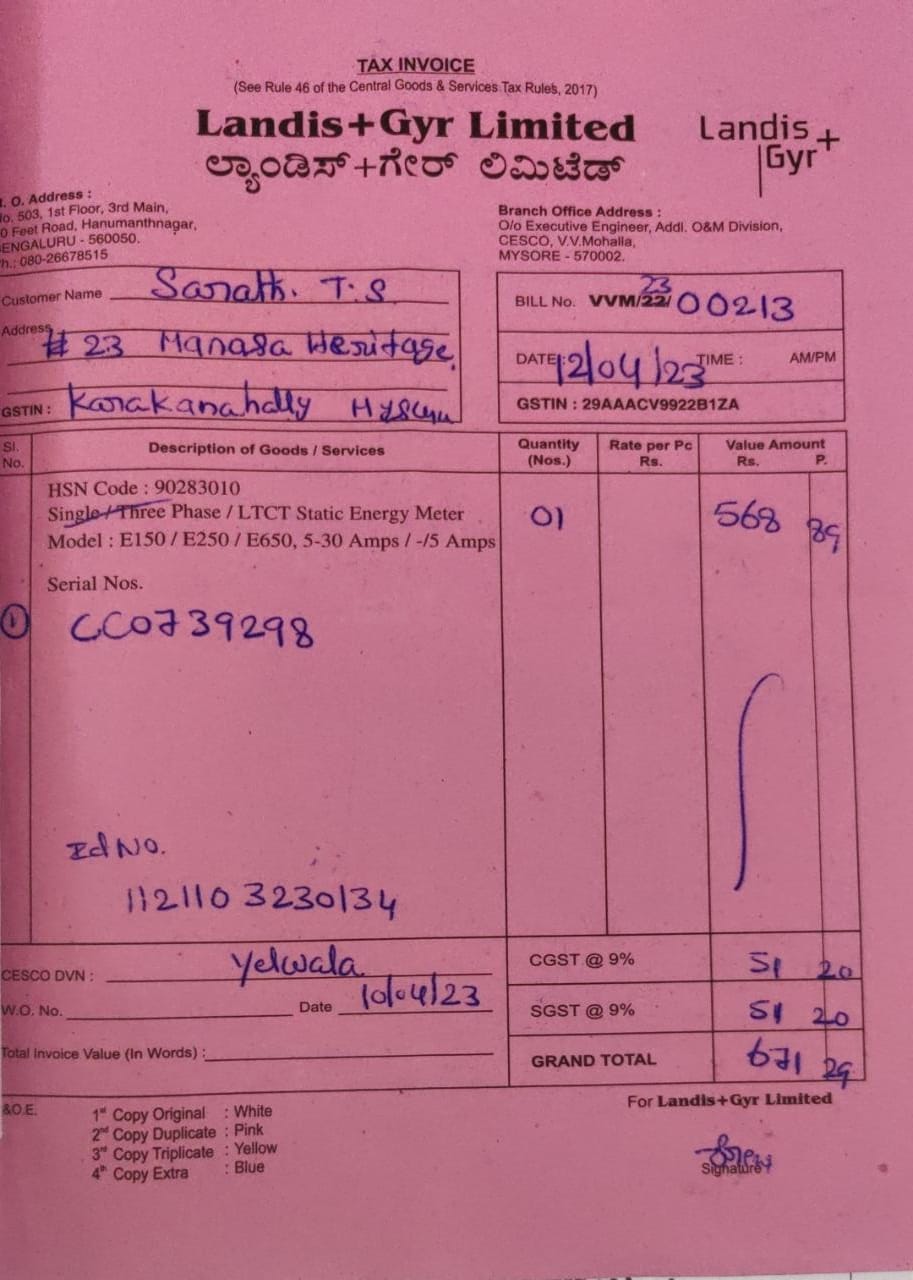 TAX INVOICE
(See Rule 46 of the Central Goods & Services Tax Rules, 2017)
Landis+Gyr Limited
ಲ್ಯಾಂಡಿಸ್+ಗೇರ್ ಲಿಮಿಟೆಡ್
Landis+
Gyr
. O. Address :
No. 503, 1st Floor, 3rd Main,
0 Feet Road, Hanumanthnagar,
BENGALURU - 560050.
h.: 080-26678515
Branch Office Address :
O/o Executive Engineer, Addl. O&M Division,
CESCO, V.V.Mohalla,
MYSORE - 570002.
Customer Name Sarath. T.S
Address # 23 Manasa Heritage,
GSTIN : Karakanahally Mysuru
BILL No. VVM/22/ 23 00213
DATE: 12/04/23 TIME : AM/PM
GSTIN : 29AAACV9922B1ZA
Sl. No. Description of Goods / Services Quantity (Nos.) Rate per Pc Rs. Value Amount Rs. P.
HSN Code : 90283010
Single / Three Phase / LTCT Static Energy Meter 01 568 89
Model : E150 / E250 / E650, 5-30 Amps / -/5 Amps
Serial Nos.
1 CC0739298
Id No.
1121103230134
CESCO DVN : Yelwala
W.O. No. Date 10/04/23
Total Invoice Value (In Words) :
CGST @ 9% 51 20
SGST @ 9% 51 20
GRAND TOTAL 671 29
&O.E.
1st Copy Original : White
2nd Copy Duplicate : Pink
3rd Copy Triplicate : Yellow
4th Copy Extra : Blue
For Landis+Gyr Limited
Signature